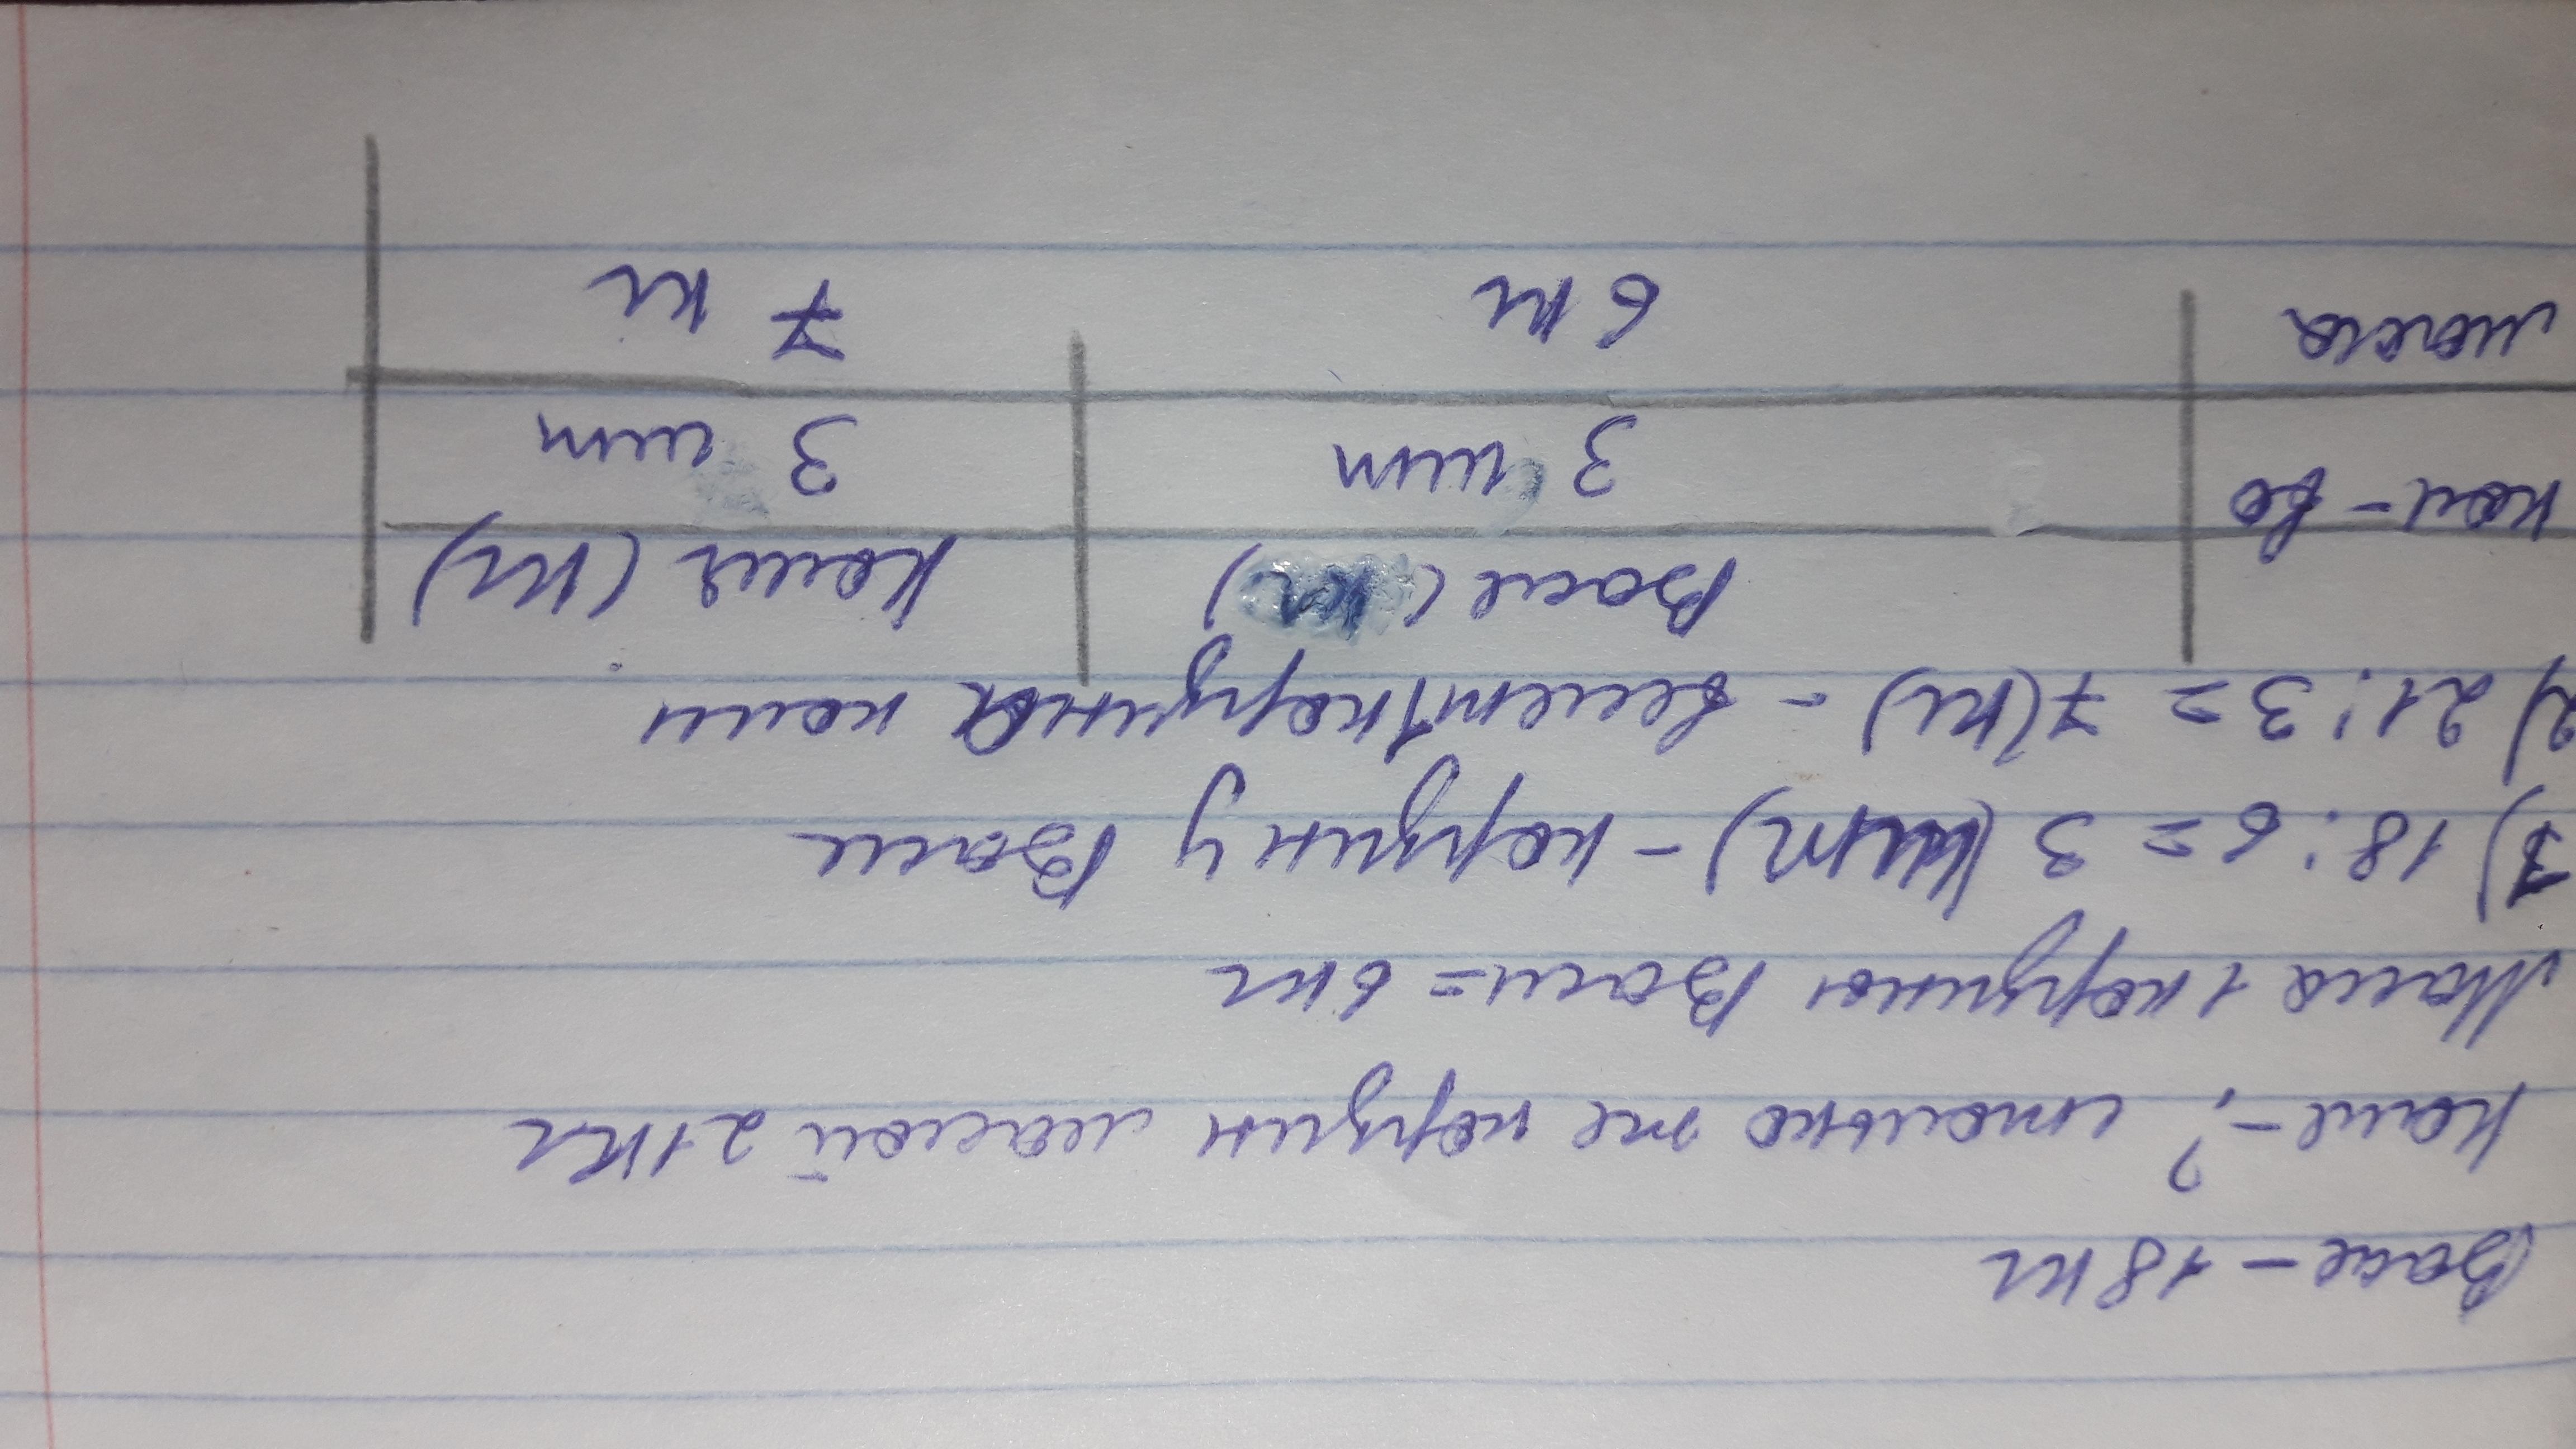 Вася - 18 кг
Коля - ? столько же корзин массой 21 кг
Масса 1 корзины Васи = 6 кг
1) 18 : 6 = 3 (шт) - корзин у Васи
2) 21 : 3 = 7 (кг) - весит 1 корзина коли
Вася (кг) Коля (кг)
кол-во 3 шт 3 шт
масса 6 кг 7 кг